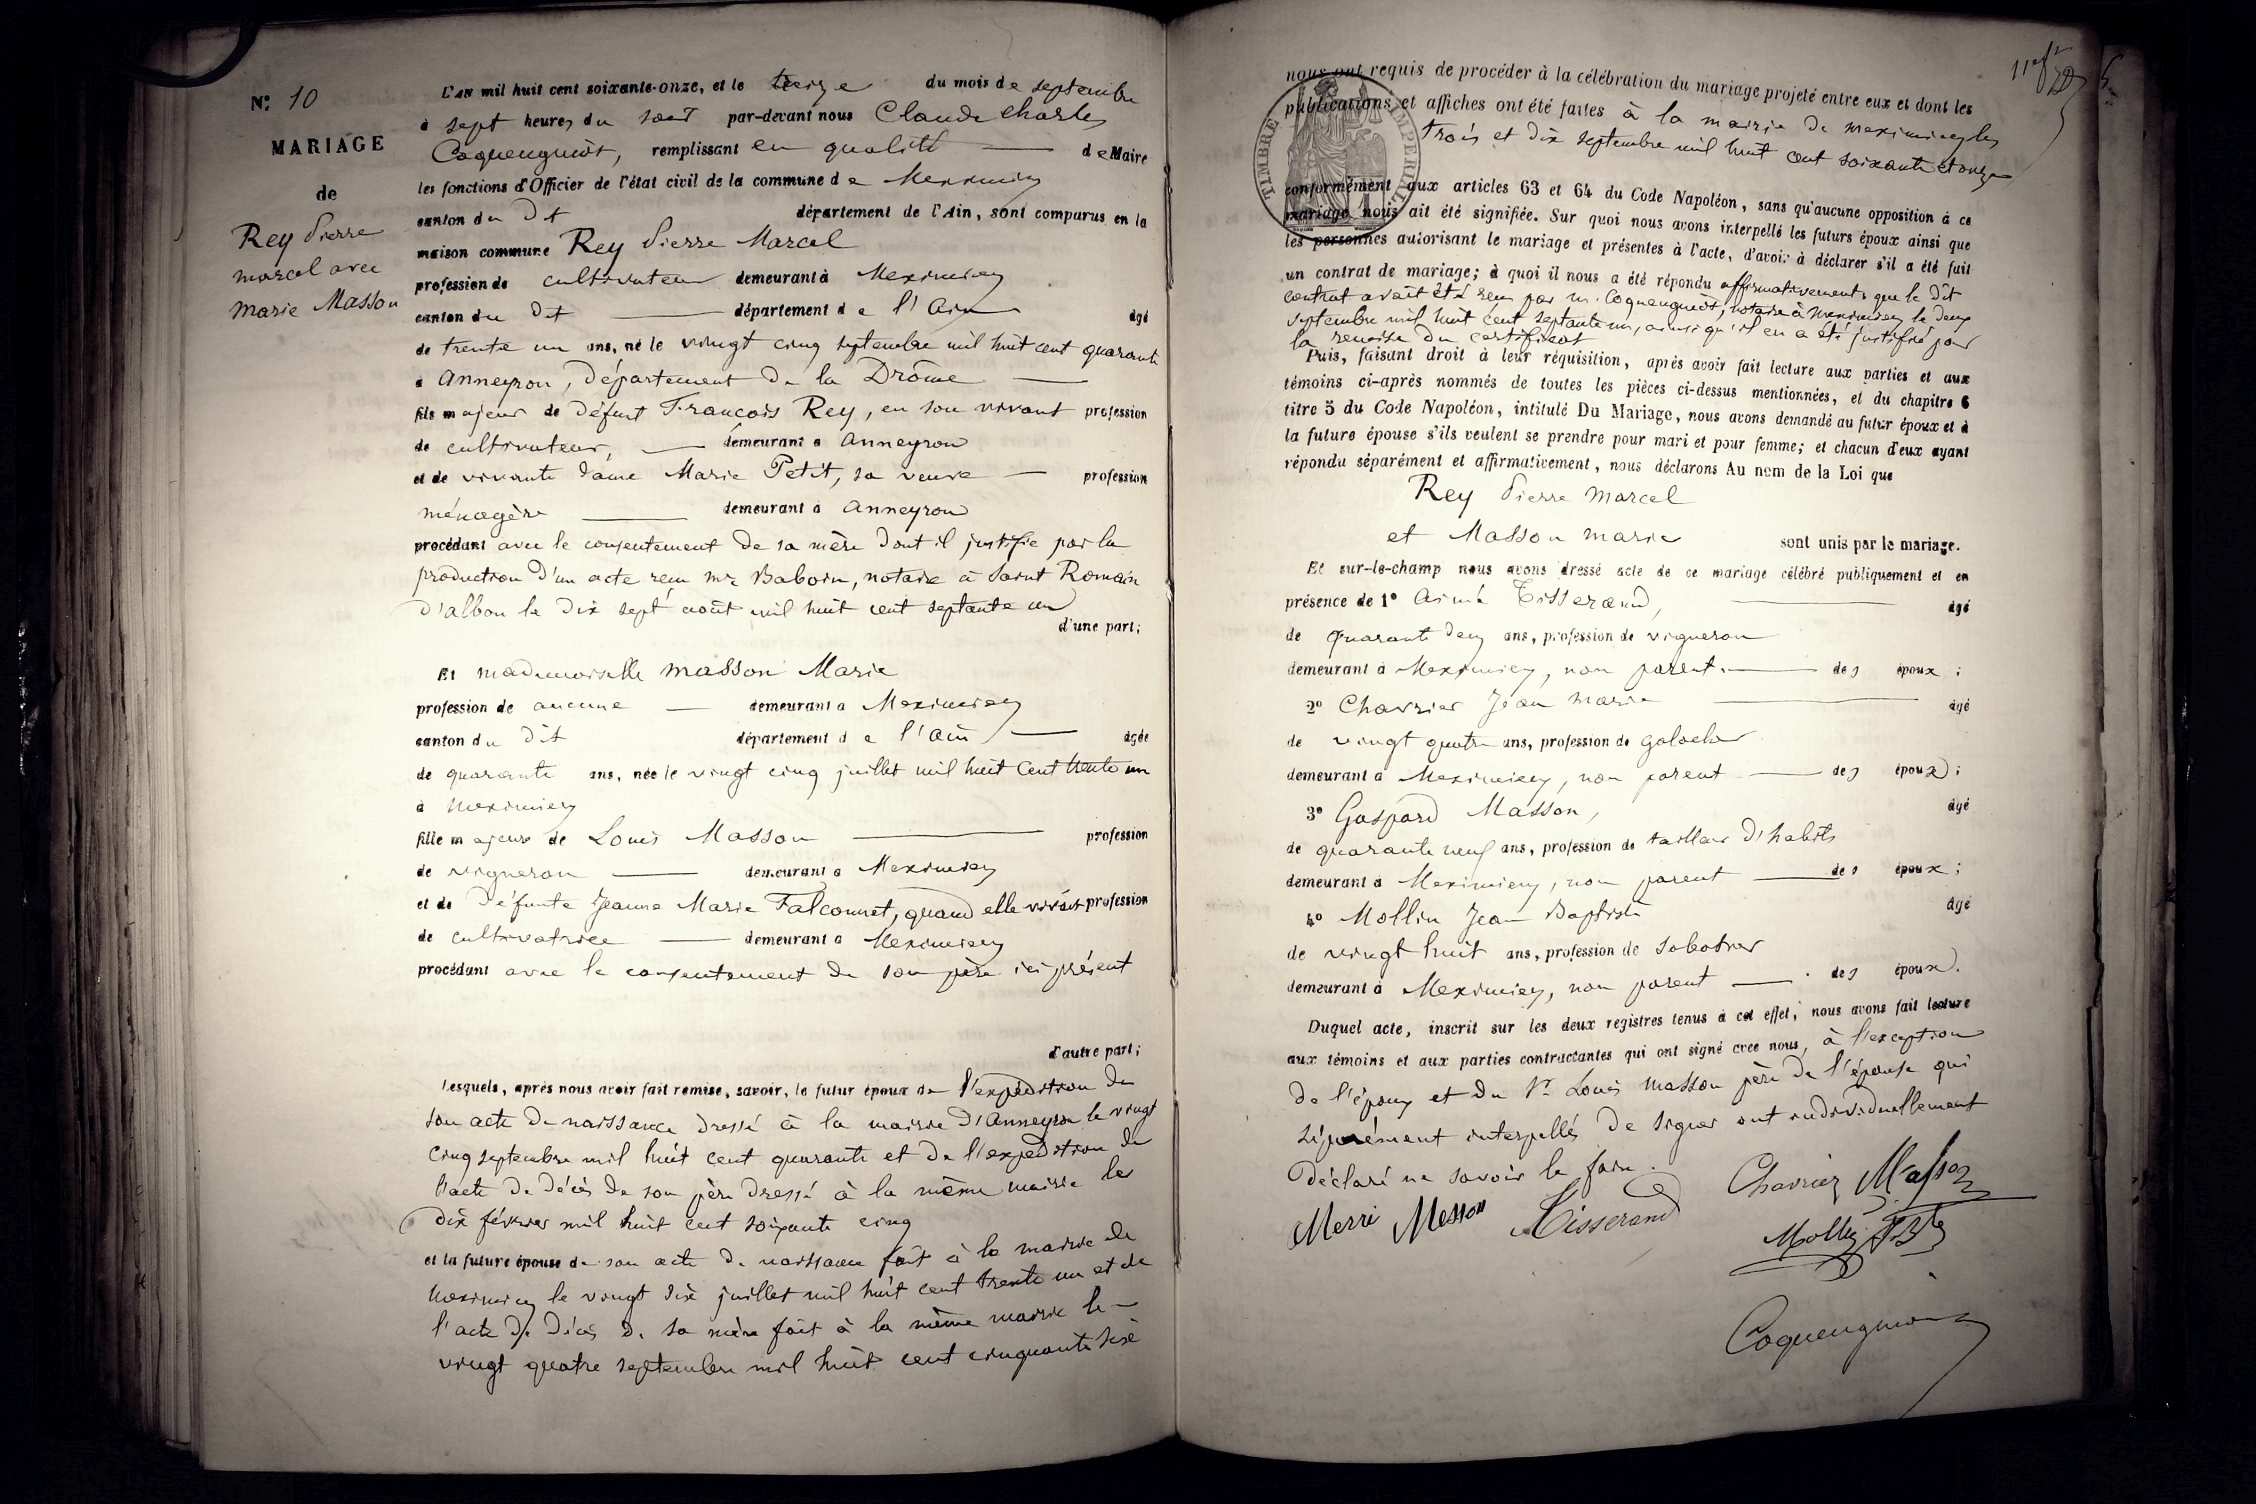 N.° 10
MARIAGE
de
Rey Pierre
marcel avec
Marie Masson
L'AN mil huit cent soixante-onze, et le treize du mois de septembre
à sept heures du soir par-devant nous Claude Charles
Coquengniot, remplissant en qualité de Maire
les fonctions d'Officier de l'état civil de la commune de Meximieux
canton du dit département de l'Ain, sont comparus en la
maison commune Rey Pierre Marcel
profession de cultivateur demeurant à Meximieux
canton du dit département de l'Ain âgé
de trente un ans, né le vingt cinq septembre mil huit cent quarante
à Anneyron, département de la Drôme
fils majeur de défunt François Rey, en son vivant profession
de cultivateur, demeurant à Anneyron
et de vivante dame Marie Petit, sa veuve profession
ménagère demeurant à Anneyron
procédant avec le consentement de sa mère dont il justifie par la
production d'un acte reçu mr Baboin, notaire à Saint Romain
d'albon le dix sept août mil huit cent septante un
d'une part;
Et mademoiselle Masson Marie
profession de aucune demeurant à Meximieux
canton du dit département de l'Ain âgée
de quarante ans, née le vingt cinq juillet mil huit cent trente un
à Meximieux
fille majeure de Louis Masson profession
de vigneron demeurant à Meximieux
et de défunte Jeanne Marie Falconnet, quand elle vivait profession
de cultivatrice demeurant à Meximieux
procédant avec le consentement de son père ici présent
d'autre part;
Lesquels, après nous avoir fait remise, savoir, le futur époux de l'expédition de
son acte de naissance dressé à la mairie d'Anneyron le vingt
cinq septembre mil huit cent quarante et de l'expédition de
l'acte de décès de son père dressé à la même mairie le
dix février mil huit cent soixante cinq
et la future épouse de son acte de naissance fait à la mairie de
Meximieux le vingt six juillet mil huit cent trente un et de
l'acte de décès de sa mère fait à la même mairie le
vingt quatre septembre mil huit cent cinquante six
nous ont requis de procéder à la célébration du mariage projeté entre eux et dont les
publications et affiches ont été faites à la mairie de Meximieux les
trois et dix septembre mil huit cent soixante et onze
TIMBRE IMPERIAL
conformément aux articles 63 et 64 du Code Napoléon, sans qu'aucune opposition à ce
mariage nous ait été signifiée. Sur quoi nous avons interpellé les futurs époux ainsi que
les personnes autorisant le mariage et présentes à l'acte, d'avoir à déclarer s'il a été fait
un contrat de mariage; à quoi il nous a été répondu affirmativement que le dit
contrat avait été reçu par m. Coquengniot, notaire à Meximieux le deux
septembre mil huit cent septante un, ainsi qu'il en a été justifié par
la remise du certificat
Puis, faisant droit à leur réquisition, après avoir fait lecture aux parties et aux
témoins ci-après nommés de toutes les pièces ci-dessus mentionnées, et du chapitre 6
titre 5 du Code Napoléon, intitulé Du Mariage, nous avons demandé au futur époux et à
la future épouse s'ils veulent se prendre pour mari et pour femme; et chacun d'eux ayant
répondu séparément et affirmativement, nous déclarons Au nom de la Loi que
Rey Pierre Marcel
et Masson Marie sont unis par le mariage.
Et sur-le-champ nous avons dressé acte de ce mariage célébré publiquement et en
présence de 1° Aimé Tisserand, âgé
de quarante deux ans, profession de vigneron
demeurant à Meximieux, non parent des époux;
2° Charrier Jean Marie âgé
de vingt quatre ans, profession de galocher
demeurant à Meximieux, non parent des époux;
3° Gaspard Masson, âgé
de quarante neuf ans, profession de tailleur d'habits
demeurant à Meximieux, non parent des époux;
4° Mollin Jean Baptiste âgé
de vingt huit ans, profession de sabotier
demeurant à Meximieux, non parent des époux.
Duquel acte, inscrit sur les deux registres tenus à cet effet, nous avons fait lecture
aux témoins et aux parties contractantes qui ont signé avec nous, à l'exception
de l'époux et du Sr Louis Masson père de l'épouse qui
séparément interpellés de signer ont individuellement
déclaré ne savoir le faire.
Merri Messon Tisserand Charrier Masson
Mollin
Coquengniot